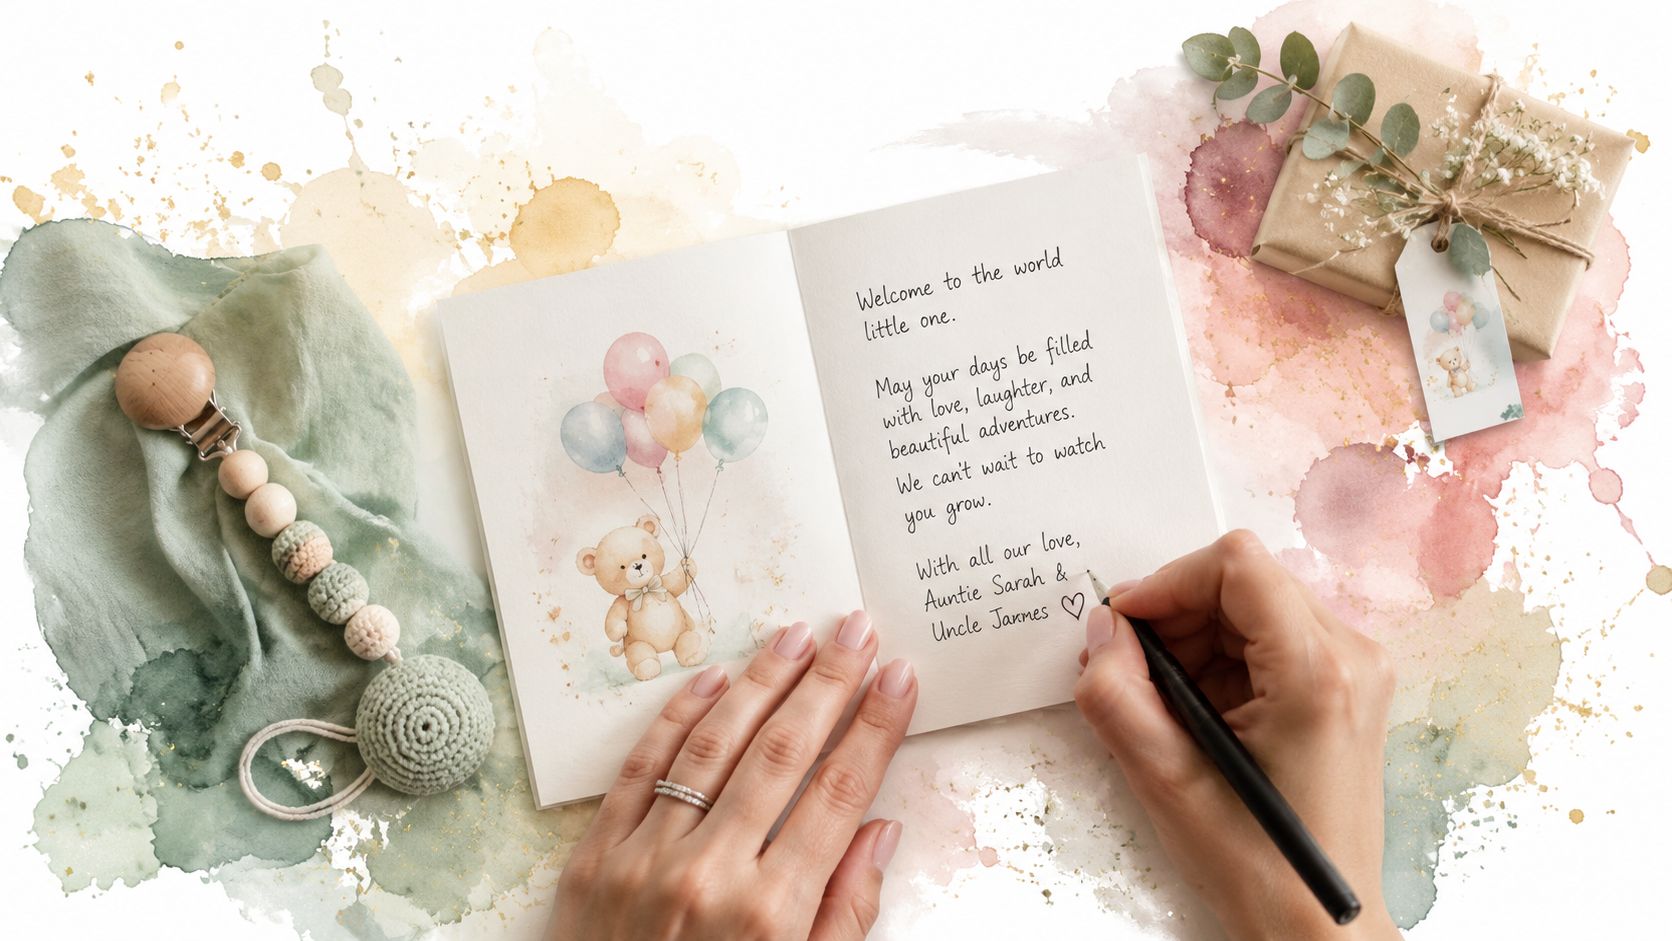 Welcome to the world
little one.
May your days be filled
with love, laughter, and
beautiful adventures.
We can't wait to watch
you grow.
With all our love,
Auntie Sarah &
Uncle Jarmes ♡